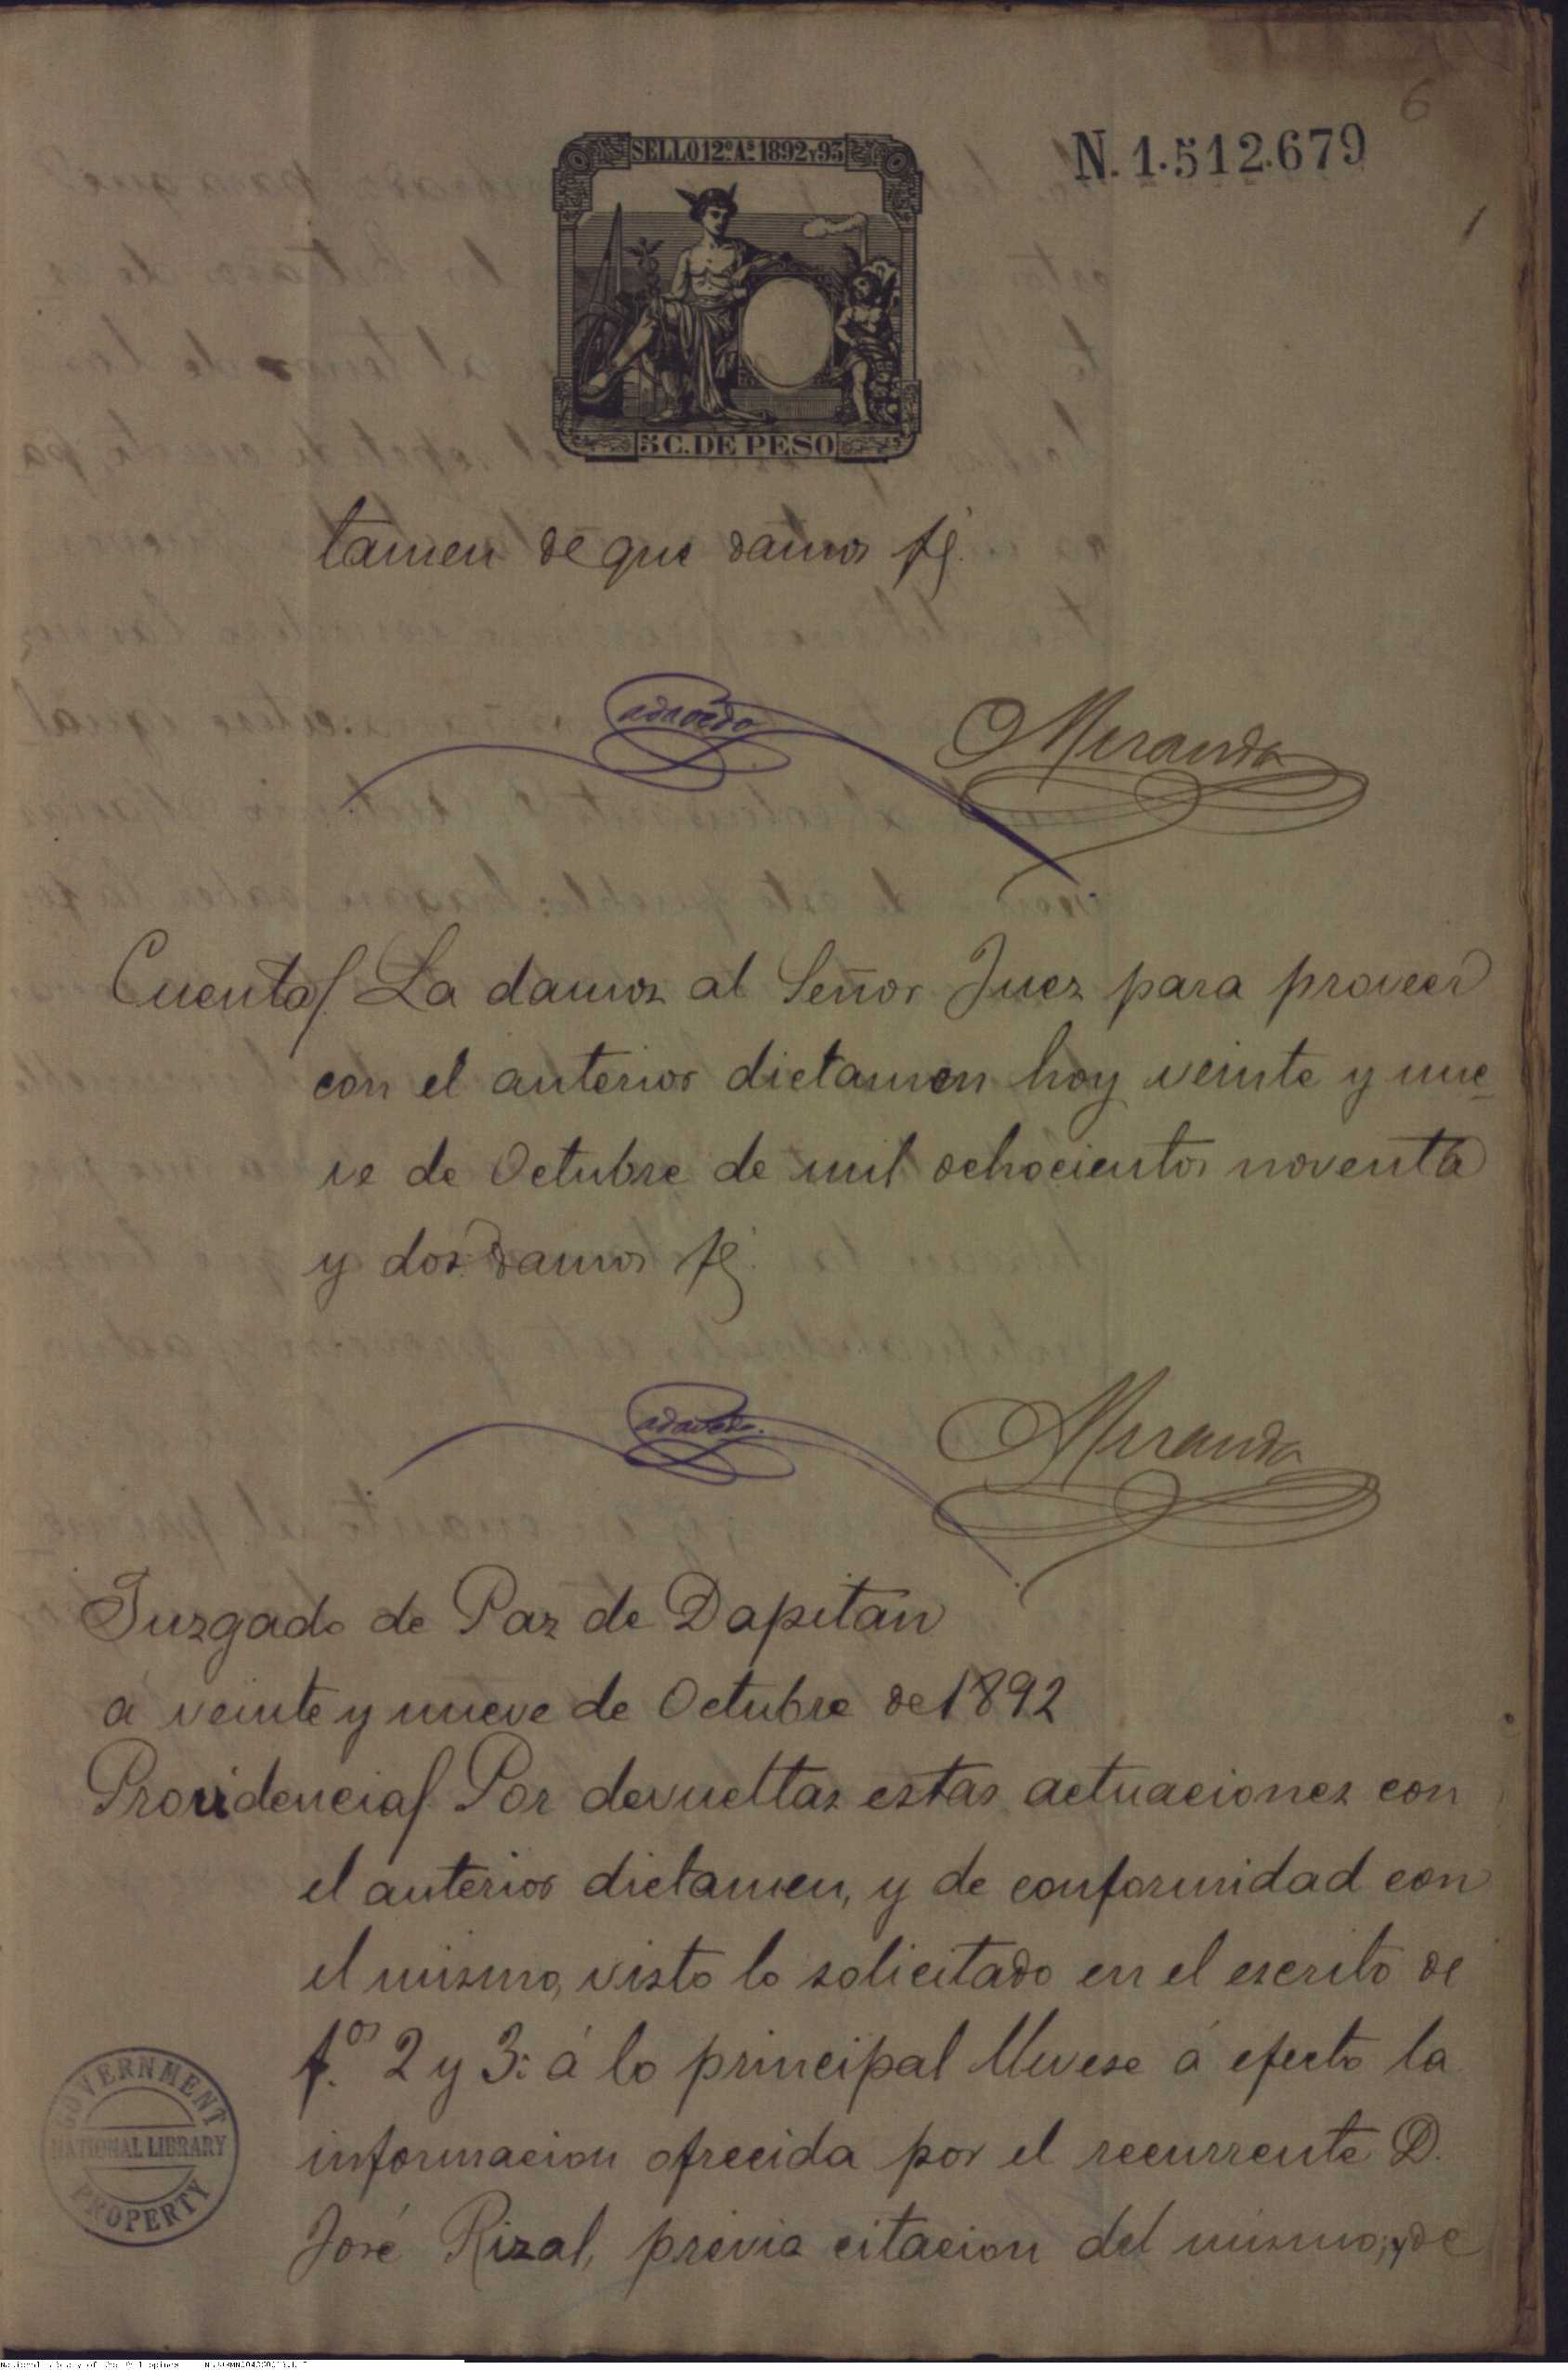 6
SELLO 12º Aˢ 1892 Y 93
N. 1.512.679
5 C. DE PESO
tamen de que damos fé.
Miranda
Cuenta/. La damos al Señor Juez para proveer
con el anterior dictamen hoy veinte y nue-
ve de Octubre de mil ochocientos noventa
y dos: damos fé.
Miranda
Juzgado de Paz de Dapitan
á veinte y nueve de Octubre de 1892
Providencia/. Por devueltas estas actuaciones con
el anterior dictamen, y de conformidad con
el mismo, visto lo solicitado en el escrito de
f.ᵒˢ 2 y 3: á lo principal llevese á efecto la
informacion ofrecida por el recurrente D.
José Rizal, previa citacion del mismo; y de
GOVERNMENT
NATIONAL LIBRARY
PROPERTY